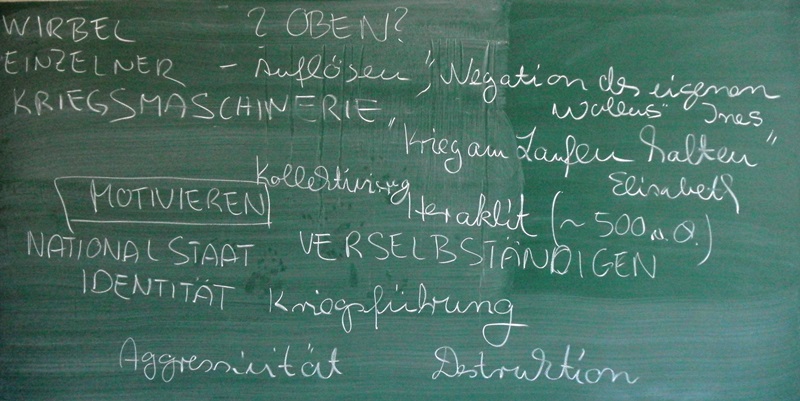 WIRBEL ? OBEN?
EINZELNER - Auflösen, "Negation des eigenen
Wollens" Ines
KRIEGSMASCHINERIE
"Krieg am Laufen halten"
Elisabeth
Kollektivierg
MOTIVIEREN
Heraklit (~ 500 u. O.)
NATIONALSTAAT VERSELBSTÄNDIGEN
IDENTITÄT Kriegsführung
Aggressivität Destruktion